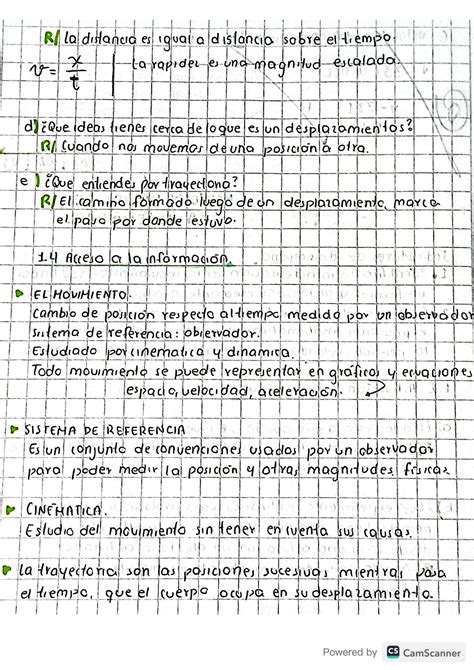 R/ La distancia es igual a distancia sobre el tiempo.
v = x/t | La rapidez es una magnitud escalada.
d) ¿Que ideas tienes cerca de lo que es un desplazamientos?
R/ Cuando nos movemos de una posición a otra.
e) ¿Que entiendes por trayectoria?
R/ El camino formado luego de un desplazamiento, marca
el paso por donde estuvo.
1.4 Acceso a la información.
EL MOVIMIENTO.
Cambio de posición respecto al tiempo medido por un observador
Sistema de referencia: observador.
Estudiado por cinematica y dinamica.
Todo movimiento se puede representar en graficos y ecuaciones
espacio, velocidad, aceleración.
SISTEMA DE REFERENCIA
Es un conjunto de convenciones usados por un observador
para poder medir la posición y otras magnitudes fisicas
CINEMATICA.
Estudio del movimiento sin tener en cuenta sus causas.
La trayectoria son las posiciones sucesivas mientras pasa
el tiempo, que el cuerpo ocupa en su desplazamiento.
Powered by CS CamScanner